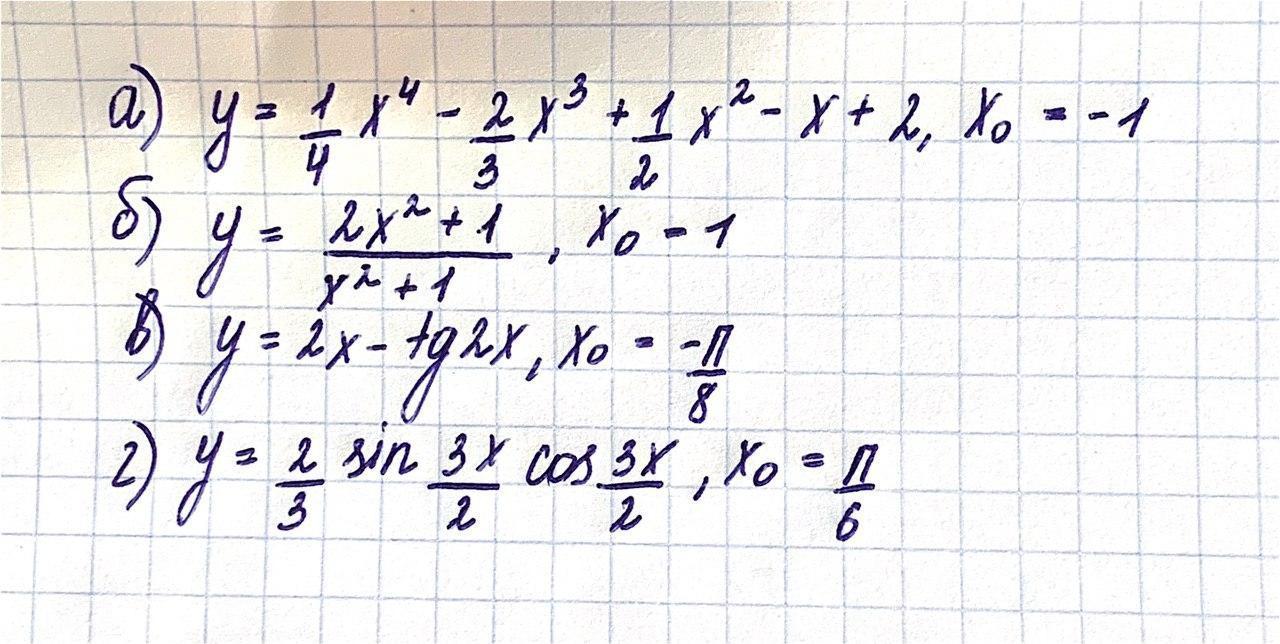 а) y = 1/4 x⁴ - 2/3 x³ + 1/2 x² - x + 2, x₀ = -1
б) y = (2x² + 1)/(x² + 1), x₀ = 1
в) y = 2x - tg2x, x₀ = -π/8
г) y = 2/3 sin 3x/2 cos 3x/2, x₀ = π/6